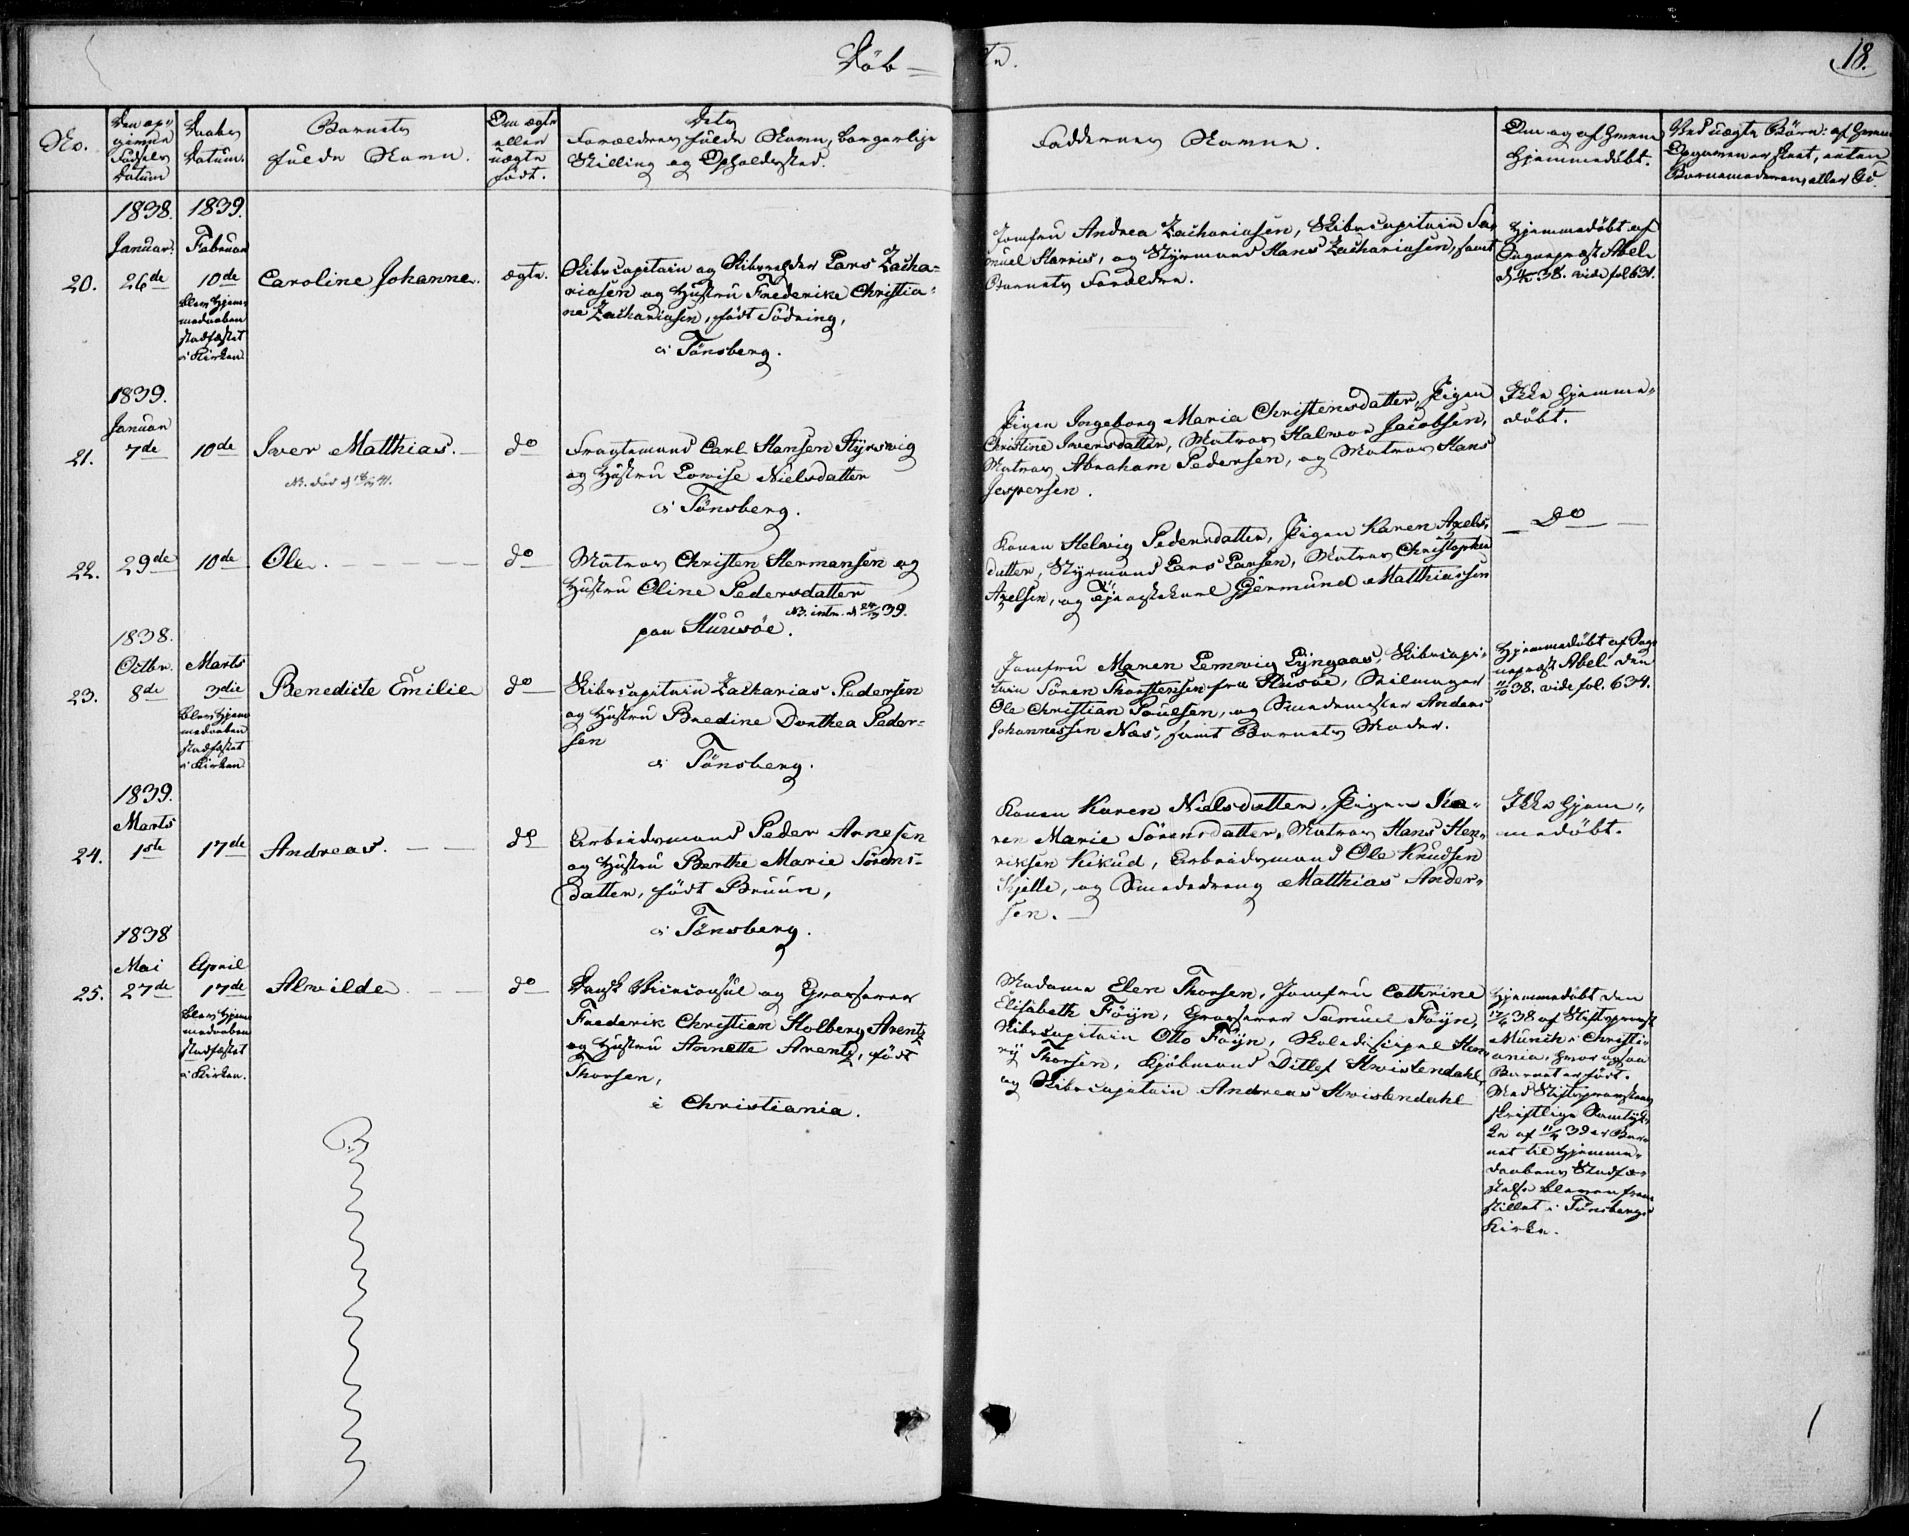 Döb=
te.
18.
No.
Den op-
givne
Födsels
Datum
Daabs
Datum.
Barnets
fulde Navn.
Om ægte
eller
uægte
født.
Dets
Forældres fulde Navn, borgerlige
Stilling og Opholdssted.
Faddernes Navne.
Om og af hvem
hjemmedøbt.
Ved uægte Børn: af hvem
Opgaven er skeet, enten
Barnemoderen, eller
1838. 1839.
Januar. Februar
20. 26de 10de Caroline Johanne. ægte.
blev hjem-
medaaben
stadfæstet
i Kirken.
Skibscapitain og Skibsrheder Lars Zacha-
riasen og Hustru Frederike Christia-
ne Zachariasen, født Södring,
i Tönsberg.
Jomfru Andrea Zachariasen, Skibscapitain Sa-
muel Harris, og Styrmand Hans Zachariasen, samt
Barnets Forældre.
Hjemmedöbt af
Sogneprest Abel
38. vide fol 631.
1839.
Januar
21. 7de 10de Iver Matthias. do
NB. död d 41.
Fragtemand Carl Hansen Styrsvig
og Hustru Lowise Nielsdatter
i Tönsberg.
Pigen Ingeborg Maria Christensdatter, Pigen
Christine Iversdatter, Matros Halvor Jacobsen,
Matros Abraham Pedersen, og Matros Hans
Jespersen.
Ikke hjemme-
döbt.
22. 29de 10de Ole. do
Matros Christen Hermansen og
Hustru Oline Pedersdatter
NB. intr. d 39.
paa Huusöe.
Konen Helvig Pedersdatter, Pigen Karen Axels-
datter, Styrmand Lars Larsen, Matros Christopher
Axelsen, og Tjenestekarl Gjermund Matthiassen
Do
1838.
Octbr. Marts
23. 8de 3die Benedicte Emilie do
blev hjem-
medaaben
stadfæstet
i Kirken
Skibscapitain Zacharias Pedersen
og Hustru Bredine Dorthea Peder-
sen
i Tönsberg.
Jomfru Maren Lemvig Lyngaas, Skibscapi-
tain Sören Thorstensen fra Husöe, Seilmager
Ole Christian Poulsen, og Smedemester Anders
Johannessen Næs, samt Barnets Moder.
Hjemmedöbt af Sog-
neprest Abel den
38. vide fol. 634.
1839.
Marts
24. 1ste 17de Andreas. do
Arbeidsmand Peder Arnesen
og Hustru Berthe Marie Sörens-
datter, født Bruun,
i Tönsberg.
Konen Karen Nielsdatter, Pigen Ka-
ren Marie Sörensdatter, Matros Hans Hen-
riksen Kikud, Arbeidsmand Ole Knudsen
Kjelle, og Smededreng Matthias Ander-
sen.
Ikke hjem-
medöbt.
1838
Mai April
25. 27de 17de Alvilde do
blev hjem-
medaaben
stadfæstet
i Kirken.
Dansk Viceconsul og Grosserer
Frederik Christian Holberg Arentz
og Hustru Annette Arentz, født
Thorsen,
i Christiania.
Madame Elen Thorsen, Jomfru Cathrine
Elisabeth Föyn, Grosserer Samuel Föyn,
Skibscapitain Otto Föyn, Skoledisipel Hen-
ry Thorsen, Kjöbmand Ditlef Hvistendahl,
og Skibscapitain Andreas Hvistendahl
Hjemmedöbt den
38 af Stiftsprovst
Munch i Christi-
ania, hvor ogsaa
Barnet er født.
Med Stiftsprovstens
skriftlige Samtyk-
ke af 11/4 39 er Bar-
net til Hjemme-
daabens Stadfæ-
stelse bleven frem-
stillet i Tönsbergs
Kirke.